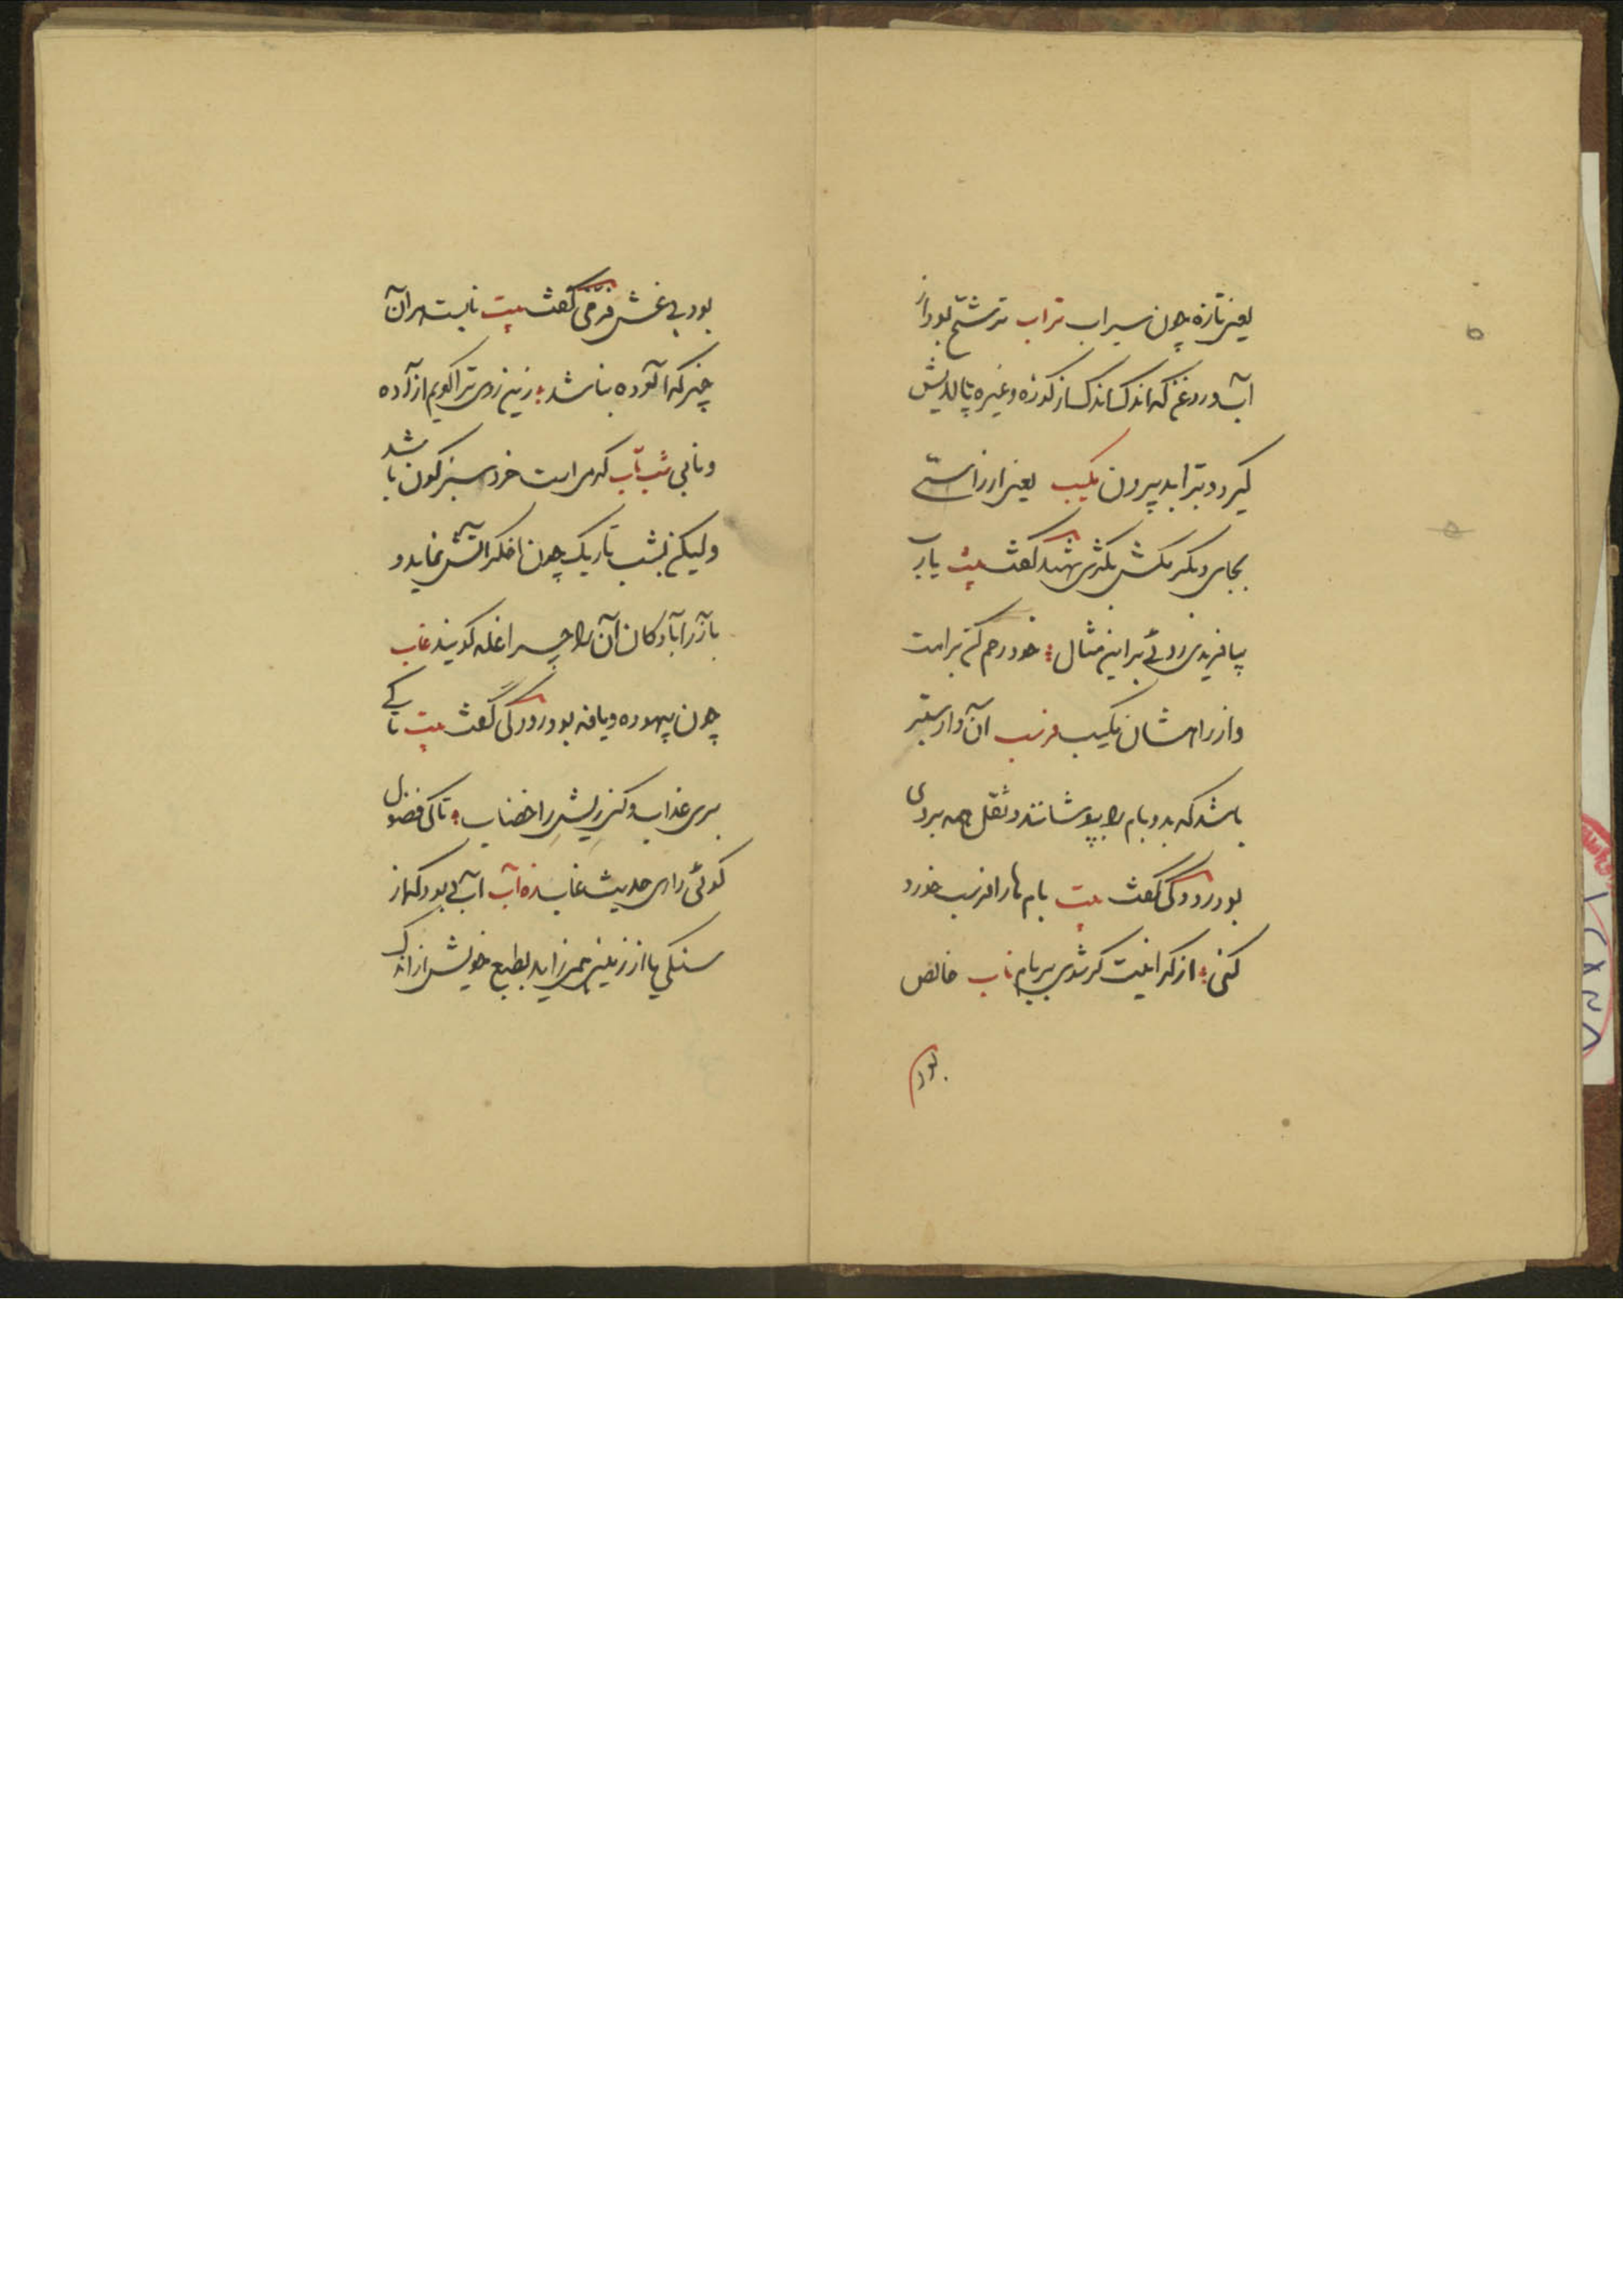 یعنی تازه چون سیراب تراب ترشح بود از
آب و روغن که اندک اندک از کوزه و غیره پالایش
گیرد و بترابد بیرون یکیب یعنی از راستی
بجای دیگر یکش بکژی شهید گفت بیت یارب
بیافریدی روئی براین مثال خود رحم کن برامت
و از راهشان یکیب فرسب آن دار ستبر
باشد که بدو بام را بپوشانند و ثقل همه بروی
بود رودکی گفت بیت بام ها را فرسب خورد
کنی از گرانیت گر شوی بر بام ناب خالص
بود
بود بی غش فرخی گفت بیت نابست هر آن
چیز که آلوده نباشد زین روی ترا گویم از آزاده
و نابی شب تاب کرمی است خرد سبزگون باشد
و لیکن بشب تاریک چون اخگر آتش نماید و
بآذرآبادگان آن را چراغله گویند غاب
چون بیهوده و یافه بود رودکی گفت بیت تا کی
بری عذاب و کنی ریش را خضاب تا کی فضول
گوئی و آری حدیث غاب زه آب آبی بود که از
سنگی یا از زمین همی زاید بطبع خویش از اندک